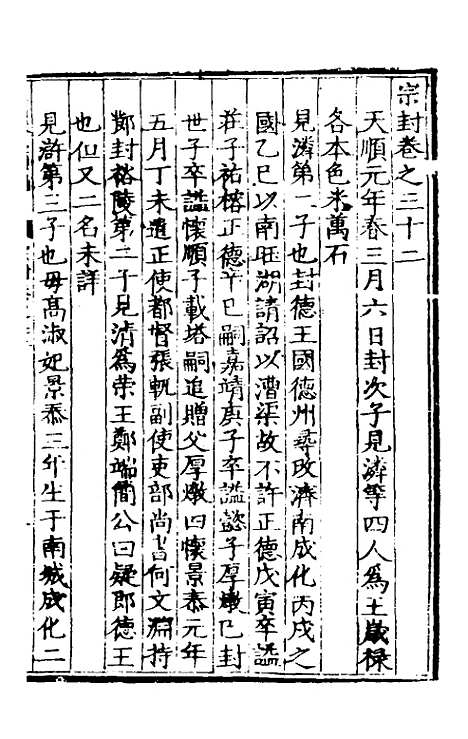 宗封卷之三十二
天順元年春三月六日封次子見潾等四人爲王歲祿
各本色米萬石
見潾第二子也封德王國德州尋改濟南成化丙戌之
國乙巳以南旺湖請詔以漕渠故不許正德戊寅卒謚
莊子祐榕正德辛巳嗣嘉靖庚子卒謚懿子厚燉已封
世子卒謚懷順子載塔嗣追贈父厚燉曰懷景泰元年
五月丁未遣正使都督張軏副使吏部尚書何文淵持
鄭封裕陵第二子見清爲荣王鄭端簡公曰疑即德王
也但又二名未詳
見滸第三子也母高淑妃景泰三年生于南城成化二